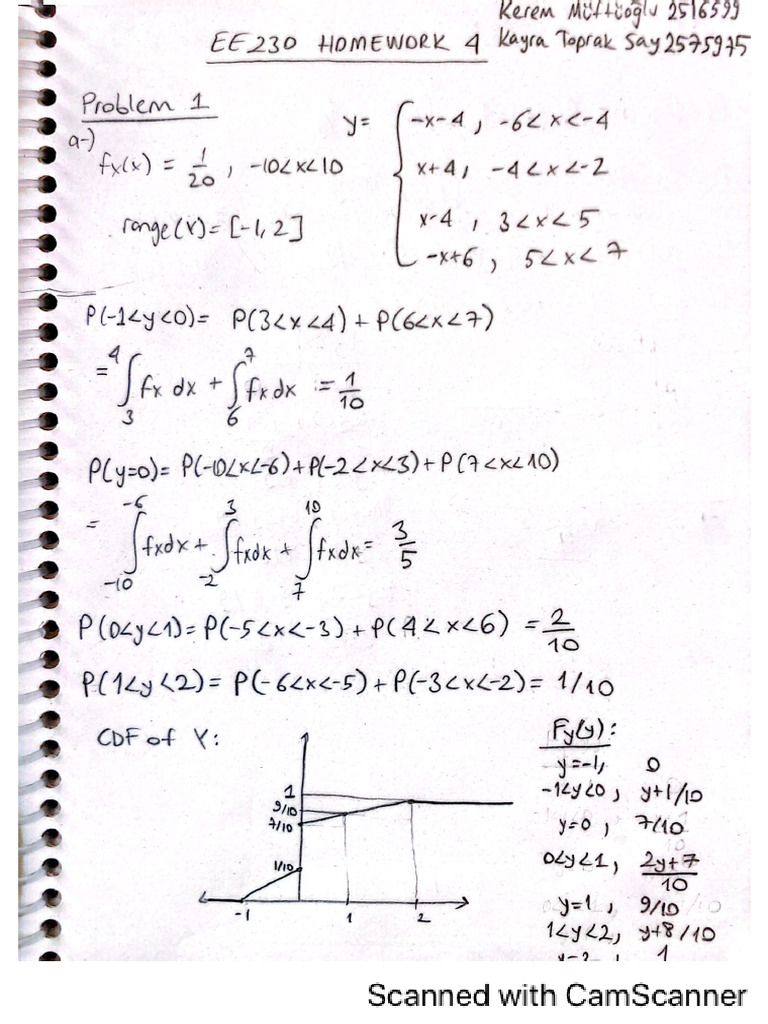 Kerem Müftüoğlu 2516599
EE230 HOMEWORK 4 Kayra Toprak Say 2575975
Problem 1
a-)
fx(x) = 1/20 , -10<x<10
range(Y) = [-1, 2]
y= { -x-4 , -6<x<-4
x+4 , -4<x<-2
x-4 , 3<x<5
-x+6 , 5<x<7
P(-1<y<0)= P(3<x<4) + P(6<x<7)
= ∫₃⁴ fx dx + ∫₆⁷ fx dx := 1/10
P(y=0)= P(-10<x<-6)+P(-2<x<3)+P(7<x<10)
= ∫₋₁₀⁻⁶ fxdx + ∫₋₂³ fxdx + ∫₇¹⁰ fxdx = 3/5
P(0<y<1)= P(-5<x<-3) + P(4<x<6) = 2/10
P(1<y<2)= P(-6<x<-5)+P(-3<x<-2)= 1/10
CDF of Y:
1
9/10
7/10
1/10
-1 1 2
Fy(y):
y=-1, 0
-1<y<0, y+1/10
y=0, 7/10
0<y<1, 2y+7/10
y=1, 9/10
1<y<2, y+8/10
y=2, 1
Scanned with CamScanner